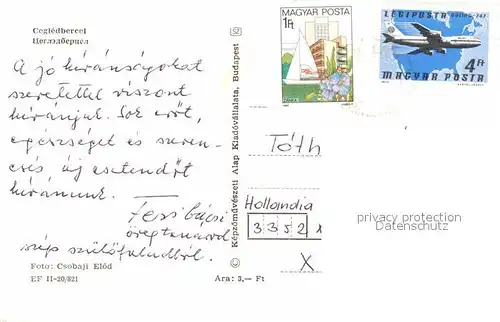 Ceglédbercel
Цеглэдберцел
A jó kívánságokat
szeretettel viszont
kívánjuk. Sok erőt,
egészséget és szeren-
csés, új esztendőt
kívánunk.
Feri bácsi
öregtanárod
szép szülőfaludból.
Foto: Csobaji Előd
EF II-20/821
Ára: 3,— Ft
Képzőművészeti Alap Kiadóvállalata, Budapest
MAGYAR POSTA
1Ft
LÉGIPOSTA BOEING-747
4Ft
MAGYAR POSTA
Tóth
Hollandia
3352
X
privacy protection
Datenschutz